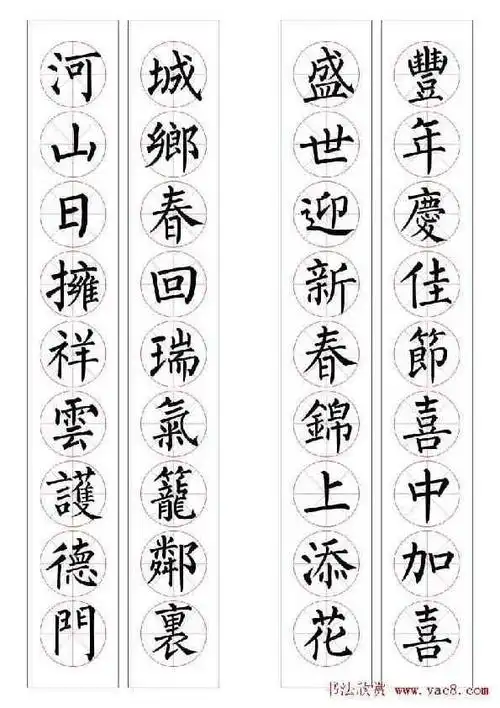 豐年慶佳節喜中加喜
盛世迎新春錦上添花
城鄉春回瑞氣籠鄰裏
河山日擁祥雲護德門
书法欣赏 www.yac8.com